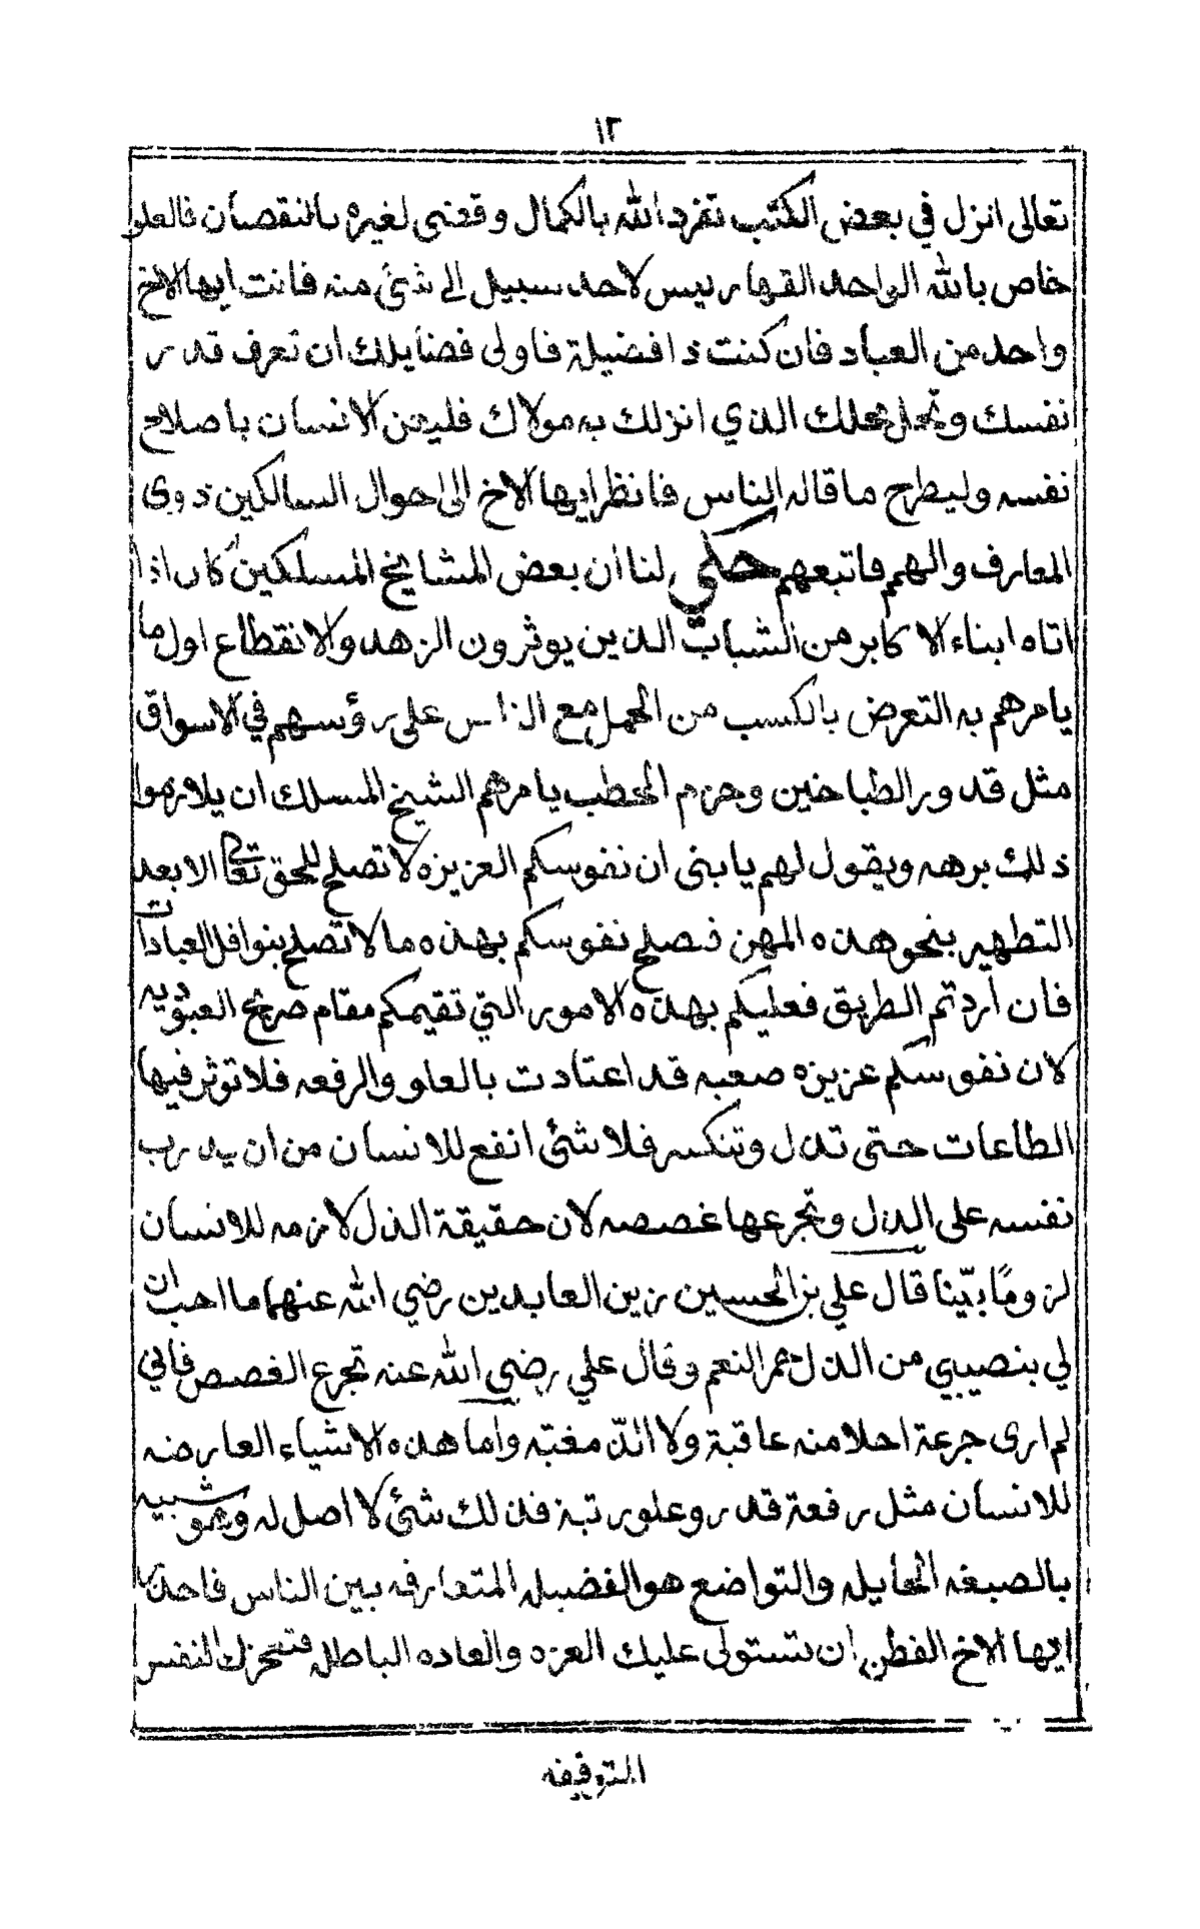 ١٢
تعالى انزل في بعض الكتب تفرد الله بالكمال وقضى لغيره بالنقصان فالعلو
خاص بالله الواحد القهار ليس لاحد سبيل الى شئ منه فانت ايها الاخ
واحد من العباد فان كنت ذا فضيلة فاولى فضايلك ان تعرف قدر
نفسك وتحل محلك الذي انزلك به مولاك فليعن الانسان باصلاح
نفسه وليطرح ما قاله الناس فانظر ايها الاخ الى احوال السالكين ذوى
المعارف والهمم فاتبعهم حكي لنا ان بعض المشايخ المسلكين كان اذا
اتاه ابناء الاكابر من الشباب الذين يوثرون الزهد والانقطاع اول ما
يامرهم به التعرض بالكسب من الحمل مع الناس على رؤسهم في الاسواق
مثل قدور الطباخين وحزم الحطب يامرهم الشيخ المسلك ان يلازموا
ذلك برهه ويقول لهم يا بنى ان نفوسكم العزيزه لا تصلح للحق تعالى الا بعد
التطهير بنحو هذه المهن فتصلح نفوسكم بهذه ما لا تصلح بنوافل العبادات
فان اردتم الطريق فعليكم بهذه الامور التي تقيمكم مقام صريح العبوديه
لان نفوسكم عزيزه صعبه قد اعتادت بالعلو والرفعه فلا توثر فيها
الطاعات حتى تذل وتنكسر فلا شئى انفع للانسان من ان يدرب
نفسه على الذل وتجرعها غصصه لان حقيقة الذل لازمه للانسان
لزومًا بيّنا قال علي بن الحسين زين العابدين رضي الله عنهما ما احب ان
لي بنصيبي من الذل حمر النعم وقال علي رضي الله عنه تجرع الغصص فاني
لم ارى جرعة احلا منه عاقبة ولا الذّ مغبته واما هذه الاشياء العارضه
للانسان مثل رفعة قدر وعلو رتبة فذلك شئى لا اصل له وتموشبيه
بالصبغه الحايله والتواضع هو الفضيله المتعارفه بين الناس فاحذر
ايها الاخ الفطن ان تستولى عليك العزه والعاده الباطله فتحرك النفس
التوقيفه